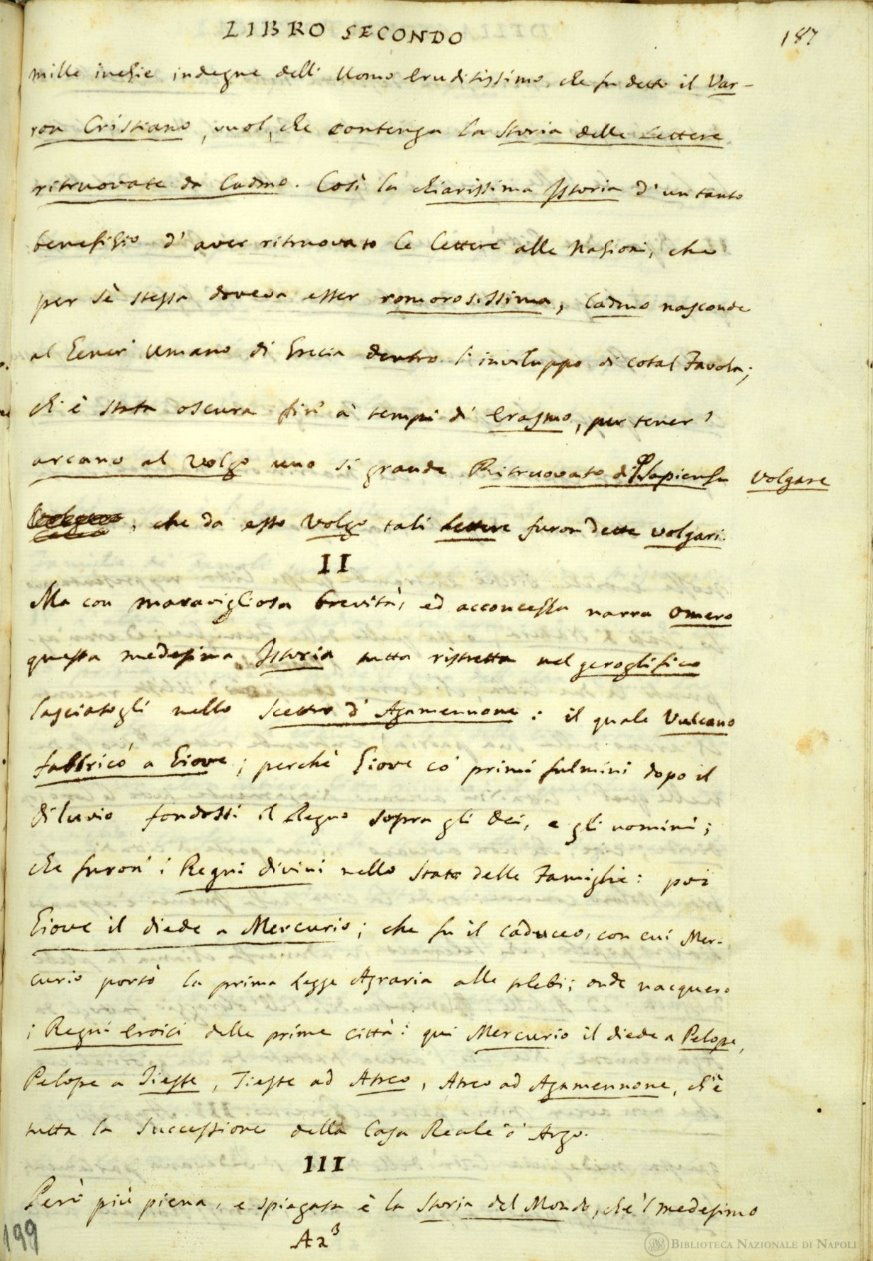 LIBRO SECONDO
187
mille inezie indegne dell' Uomo Eruditissimo, che fu detto il Var-
ron Cristiano, vuol, che contenga la Storia delle Lettere
ritruovate da Cadmo. Così la chiarissima Istoria d'un tanto
benefizio d'aver ritruovato le lettere alle Nazioni, che
per sè stessa doveva esser romorosissima, Cadmo nasconde
al Gener' Umano di Grecia dentro l'inviluppo di cotal Favola;
ch'è stata oscura fin' a' tempi di Erasmo, per tener'
arcano al volgo uno sì grande Ritruovato di Sapienza volgare
, che da esso volgo tali Lettere furon dette volgari.
II
Ma con maravigliosa brevità, ed acconcezza narra Omero
questa medesima Istoria tutta ristretta nel geroglifico
lasciatogli nello Scettro d'Agamennone: il quale Vulcano
fabbricò a Giove; perchè Giove co' primi fulmini dopo il
diluvio fondossi il Regno sopra gli Dei, e gli uomini;
che furon' i Regni divini nello Stato delle Famiglie: poi
Giove il diede a Mercurio; che fu il caduceo, con cui Mer-
curio portò la prima Legge Agraria alle plebi; onde nacquero
i Regni Eroici delle prime città: qui Mercurio il diede a Pelope,
Pelope a Tieste, Tieste ad Atreo, Atreo ad Agamennone, ch'è
tutta la Successione della Casa Reale d'Argo.
III
Però più piena, e spiegata è la Storia del Mondo, che'l medesimo
Aa3
199
BIBLIOTECA NAZIONALE DI NAPOLI